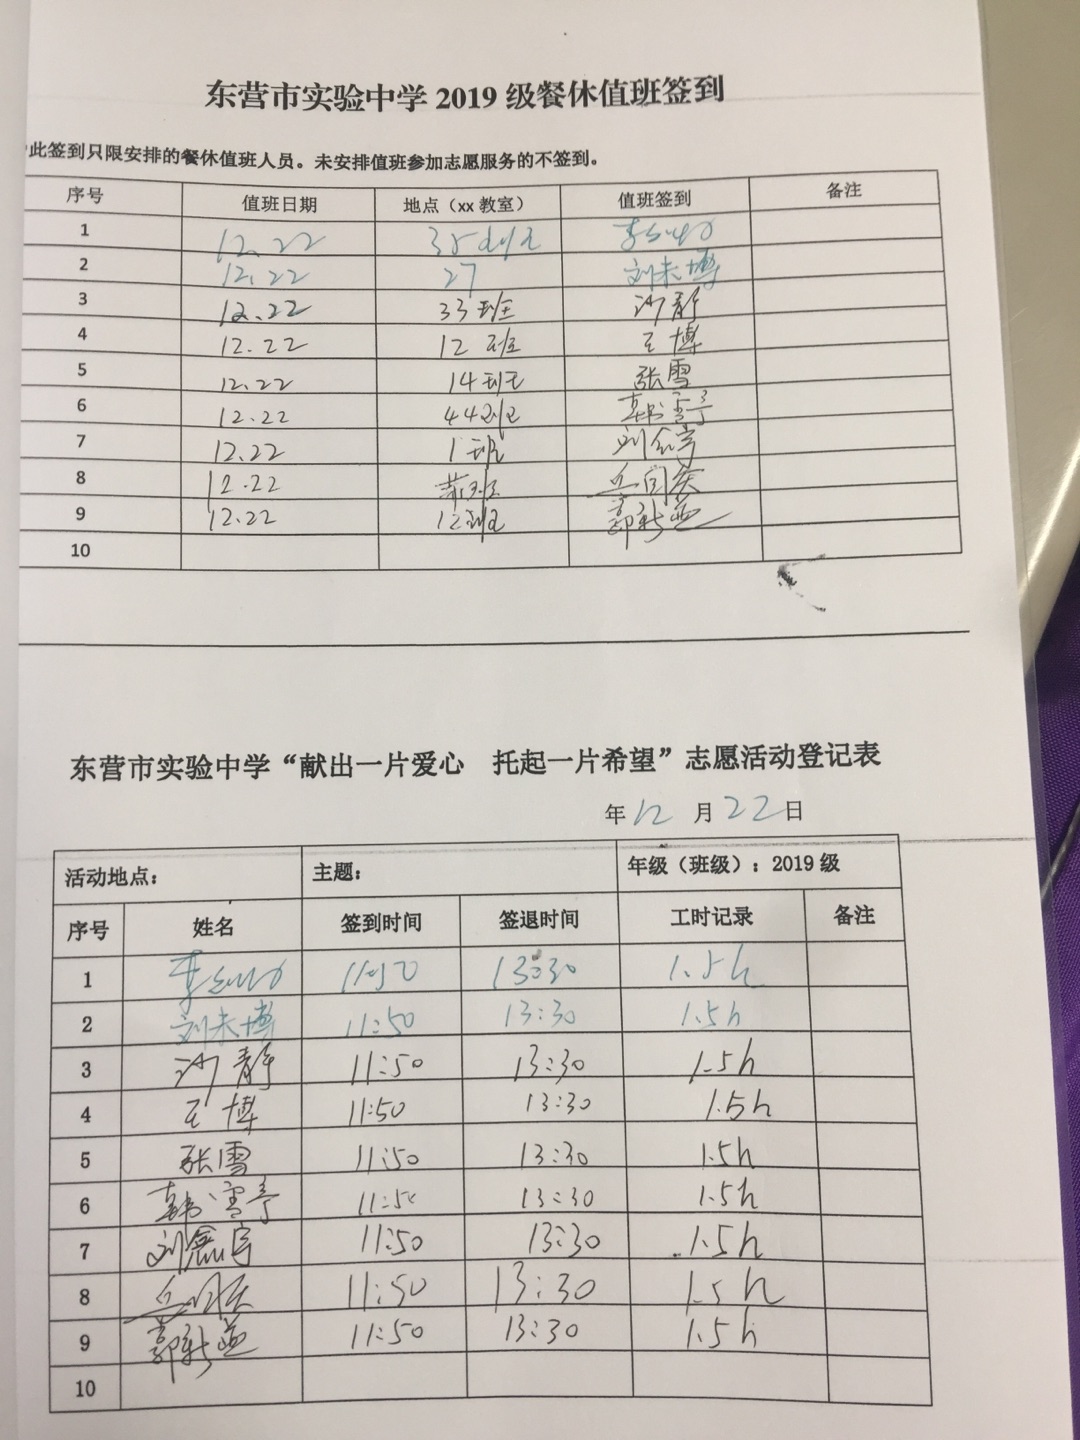 东营市实验中学 2019 级餐休值班签到
此签到只限安排的餐休值班人员。未安排值班参加志愿服务的不签到。
序号 值班日期 地点（xx 教室） 值班签到 备注
1 12.22 35班
2 12.22 27 刘未博
3 12.22 33班 沙静
4 12.22 12 班 王博
5 12.22 14班 张雪
6 12.22 44班 韩雪亭
7 12.22 1班 刘鑫宇
8 12.22
9 12.22 12班 郭新燕
10
东营市实验中学“献出一片爱心 托起一片希望”志愿活动登记表
年 12 月 22 日
活动地点： 主题： 年级（班级）：2019 级
序号 姓名 签到时间 签退时间 工时记录 备注
1 11:50 13:30 1.5h
2 刘未博 11:50 13:30 1.5h
3 沙静 11:50 13:30 1.5h
4 王博 11:50 13:30 1.5h
5 张雪 11:50 13:30 1.5h
6 韩雪亭 11:50 13:30 1.5h
7 刘鑫宇 11:50 13:30 1.5h
8 11:50 13:30 1.5h
9 郭新燕 11:50 13:30 1.5h
10